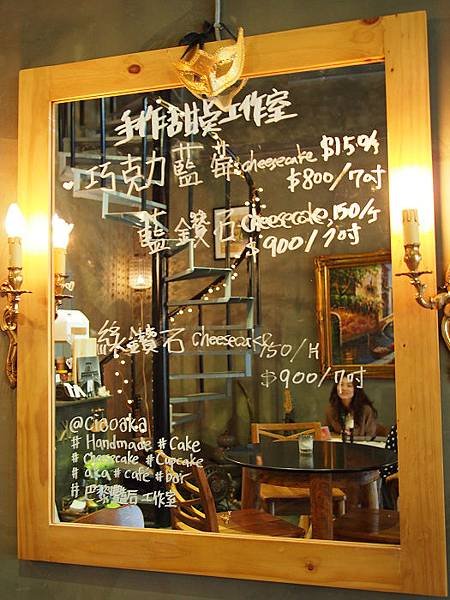 手作甜点工作室
巧克力藍莓cheesecake $150/片
$800/7吋
藍鑽石cheesecake,150/片
$900/7吋
綠鑽石cheesecake150/片
$900/7吋
@ciaoaka
# Handmade # Cake
# Cheesecake # Cupcake
# aka # café # bar
# 巴黎鑽石工作室